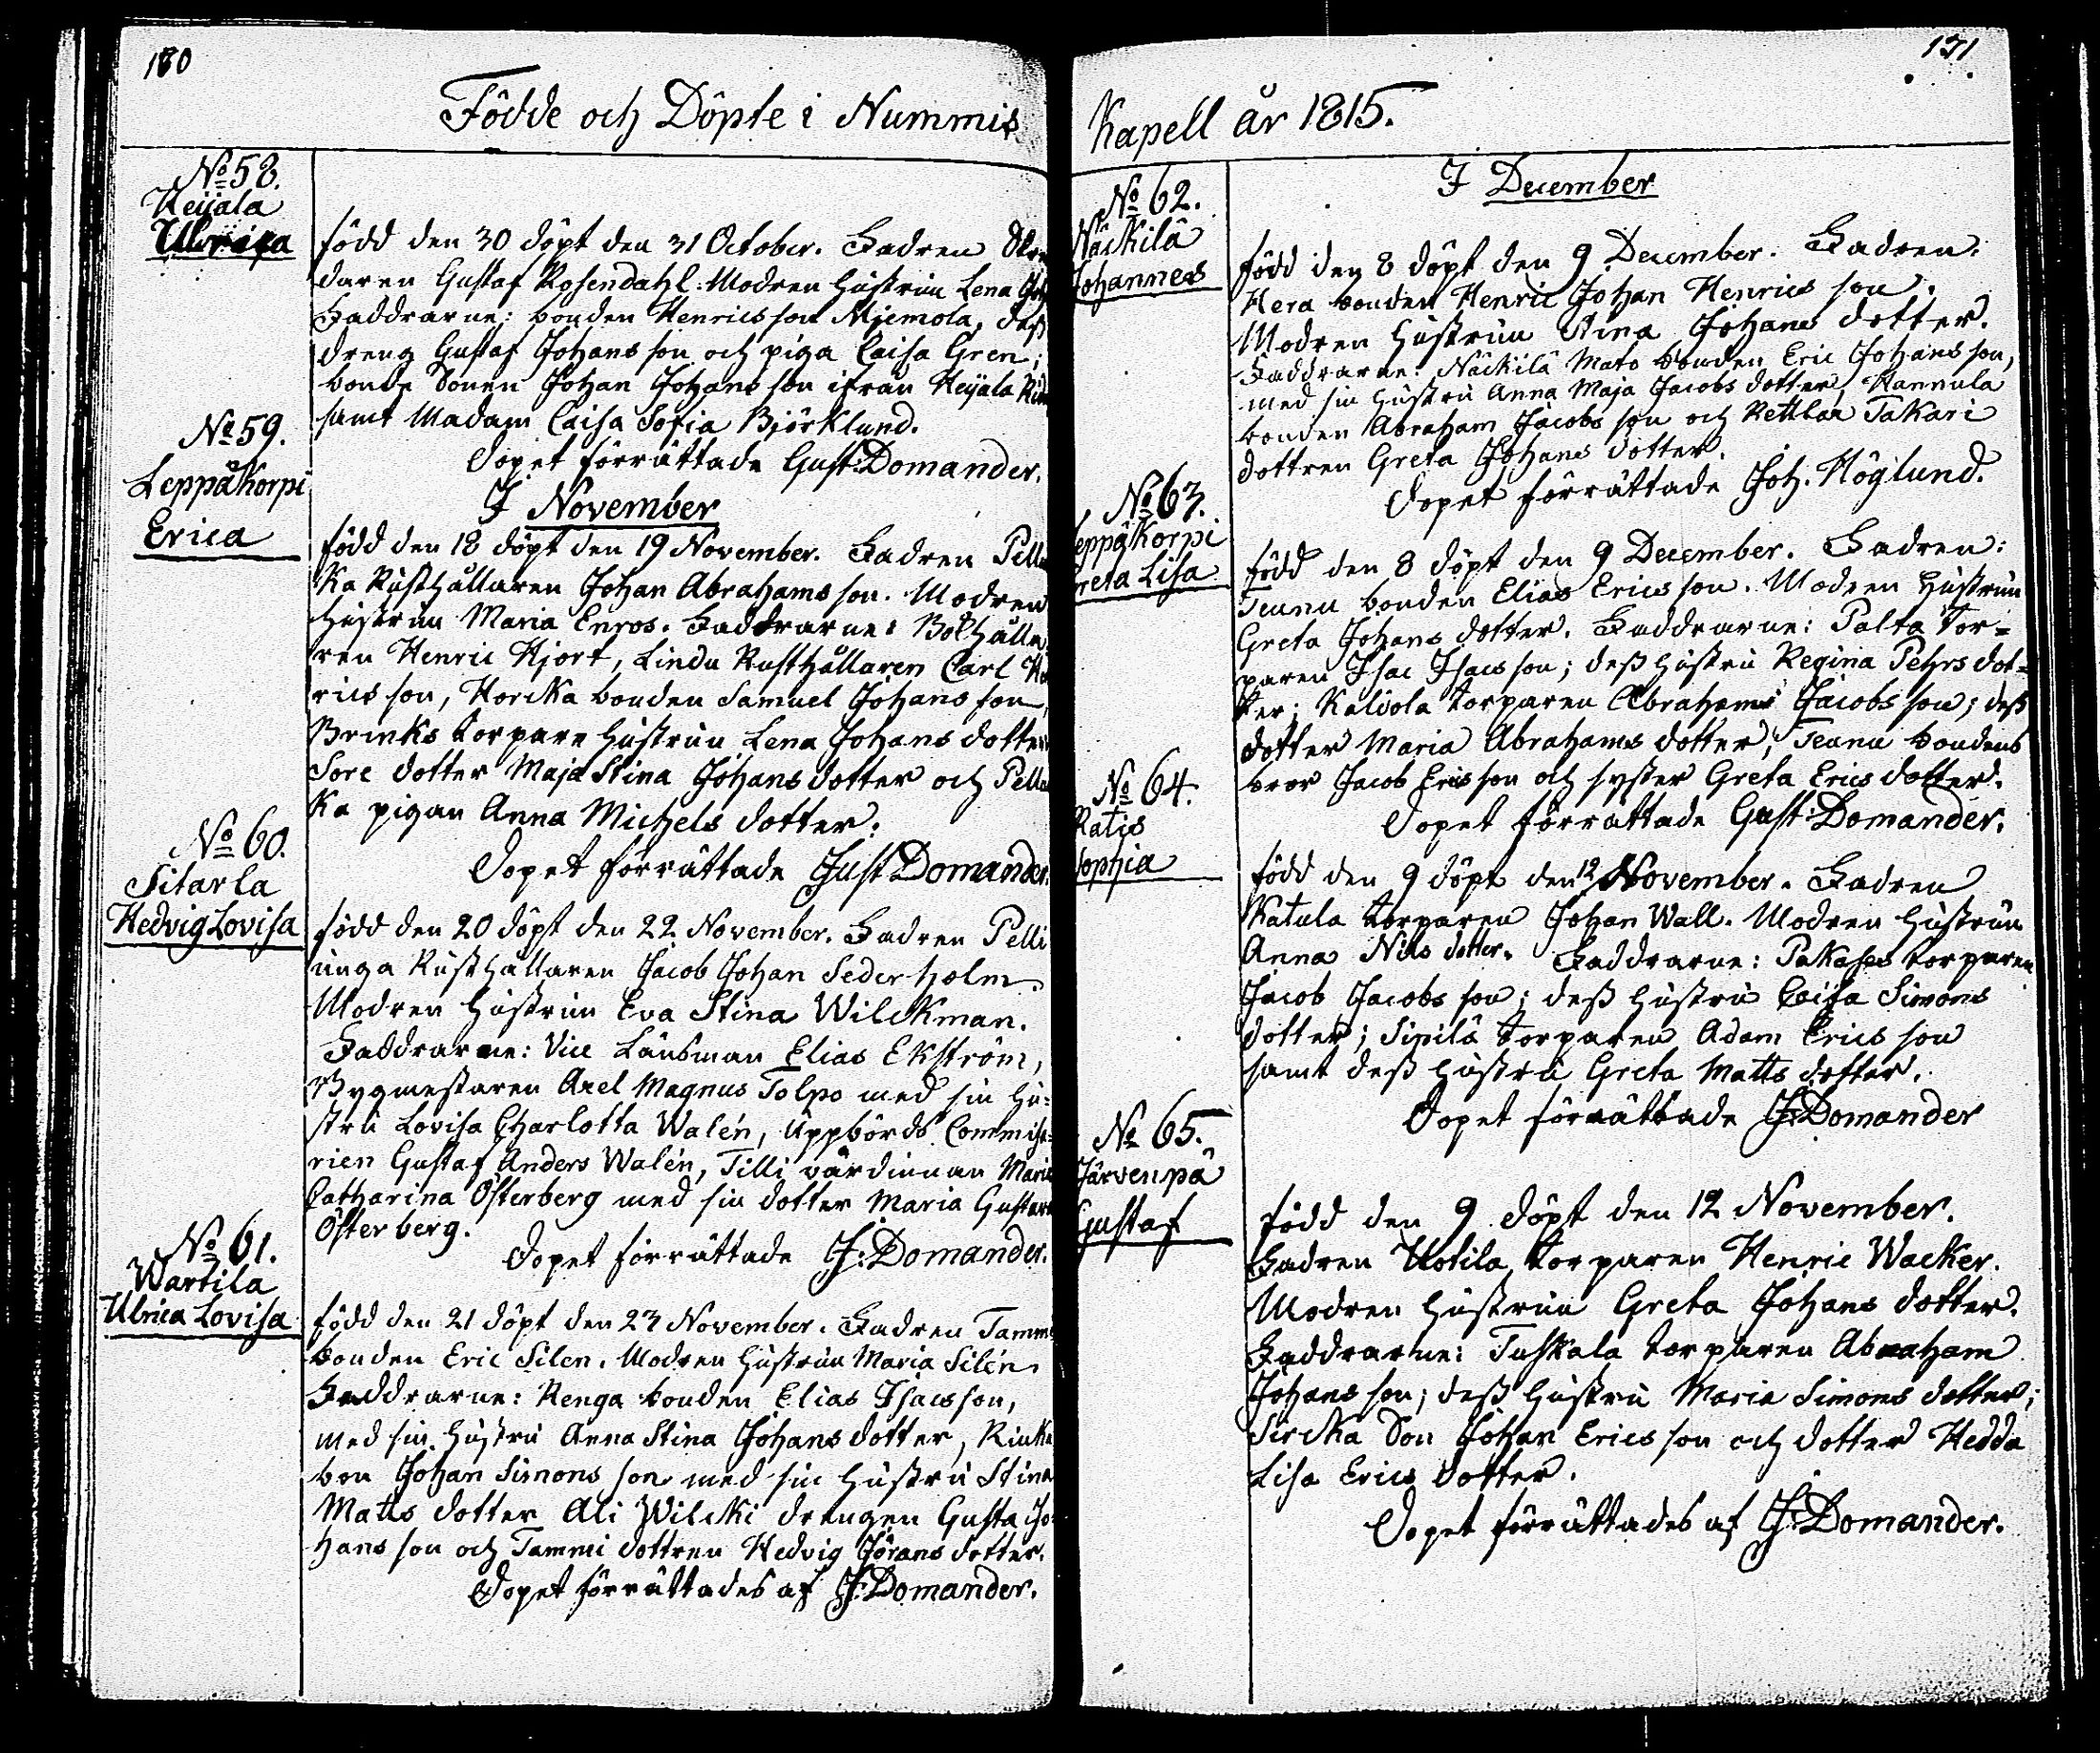 180
Födde och Döpte i Nummis
No 58.
Heijala
Ulrica
född den 30 döpt den 31 October. Fadren
daren Gustaf Rosendahl. Modren hustrun Lena
Faddrarne: bonden Henrics son Mjemola, dess
dreng Gustaf Johans son och piga Caisa Gren;
bonde sonen Johan Johans son ifrån Heijala
samt Madam Caisa Sofia Björklund.
Dopet förrättade Gust: Domander.
I November
No 59.
Leppäkorpi
Erica
född den 18 döpt den 19 November. Fadren
Ka Rusthållaren Johan Abrahams son. Modren
hustrun Maria Enros. Faddrarne: Bolhålla
ren Henric Hjort, Lindu Rusthållaren Carl
rics son, Horcka bonden Samuel Johans son,
Brinks torpare hustrun Lena Johans dotter
Sore dotter Maja Stina Johans dotter och
Ka pigan Anna Michels dotter.
Dopet förrättade Gust Domander.
No 60.
Sitarla
Hedvig Lovisa
född den 20 döpt den 22 November. Fadren Pelli
unga Rusthållaren Jacob Johan Sederholm.
Modren hustrun Eva Stina Wilckman.
Faddrarne: Vice Länsman Elias Ekström,
Bygmestaren Axel Magnus Tolpo med sin hu=
stru Lovisa Charlotta Walén, Uppbörds Commissa=
rien Gustaf Anders Walén, Tilli värdinnan Maria
Catharina Österberg med sin dotter Maria Gustava
Österberg.
Dopet förrättade G: Domander.
No 61.
Wartila
Ulrica Lovisa
född den 21 döpt den 23 November. Fadren Tammi
bonden Eric Silen. Modren hustrun Maria Silén.
Faddrarne: Renga bonden Elias Isacs son,
med sin hustru Anna Stina Johans dotter,
bon Johan Simons son med sin hustru Stina
Matts dotter Ali Wilcki drengen Gusta Jo
hans son och Tammi dottren Hedvig Görans dotter.
Dopet förrättades af G: Domander.
171
Kapell år 1815.
I December
No 62.
Näckilä
Johannes
född den 8 döpt den 9 December. Fadren:
Hera bonden Henric Johan Henrics son.
Modren hustrun Stina Johans dotter.
Faddrarne: Näckilä Mato bonden Eric Johans son,
med sin hustru Anna Maja Jacobs dotter, Hannula
bonden Abraham Jacobs son och Rettlar Takari
dottren Greta Johans dotter.
Dopet förrättade Joh. Höglund.
No 63.
eppäkorpi
reta Lisa
född den 8 döpt den 9 December. Fadren:
Teunu bonden Elias Erics son. Modren hustrun
Greta Johans dotter. Faddrarne: Palta tor=
paren Isac Isacs son; dess hustru Regina Pehrs dot=
ter; Kalvola torparen Abrahams Jacobs son; dess
dotter Maria Abrahams dotter, Teunu bondens
bror Jacob Erics son och syster Greta Erics dotter.
Dopet förrättade Gust: Domander.
No 64.
Ratis
Sophia
född den 9 döpt den 12 November. Fadren
Katula torparen Johan Wall. Modren hustrun
Anna Nils dotter. Faddrarne: Pakases torparen
Jacob Jacobs son; dess hustru Caisa Simons
dotter; Sipilä torparen Adam Erics son
samt dess hustru Greta Matts dotter.
Dopet förrättade G: Domander
No 65.
Järvenpä
Gustaf
född den 9 döpt den 12 November.
Fadren Uotila torparen Henric Wacker.
Modren hustrun Greta Johans dotter.
Faddrarne: Tuskala torparen Abraham
Johans son; dess hustru Maria Simons dotter;
Sircka son Johan Erics son och dotter Hedda
Lisa Erics dotter.
Dopet förrättades af G: Domander.